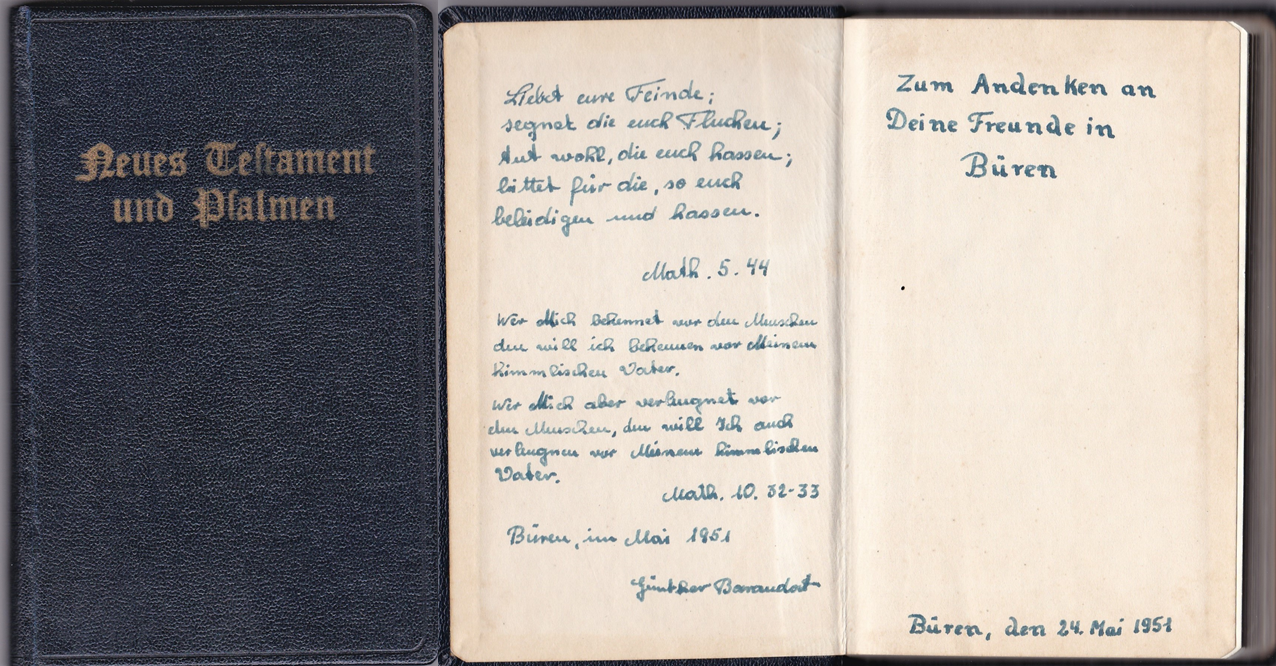 Neues Testament
und Psalmen
Liebet eure Feinde;
segnet die euch Fluchen;
tut wohl, die euch hassen;
bittet für die, so euch
beleidigen und hassen.
Math. 5. 44
Wer Mich bekennet vor den Menschen
den will ich bekennen vor Meinem
himmlischen Vater.
Wer Mich aber verleugnet vor
den Menschen, den will Ich auch
verleugnen vor Meinem himmlischen
Vater.
Math. 10. 32-33
Büren, im Mai 1951
Günther
Zum Andenken an
Deine Freunde in
Büren
Büren, den 24. Mai 1951